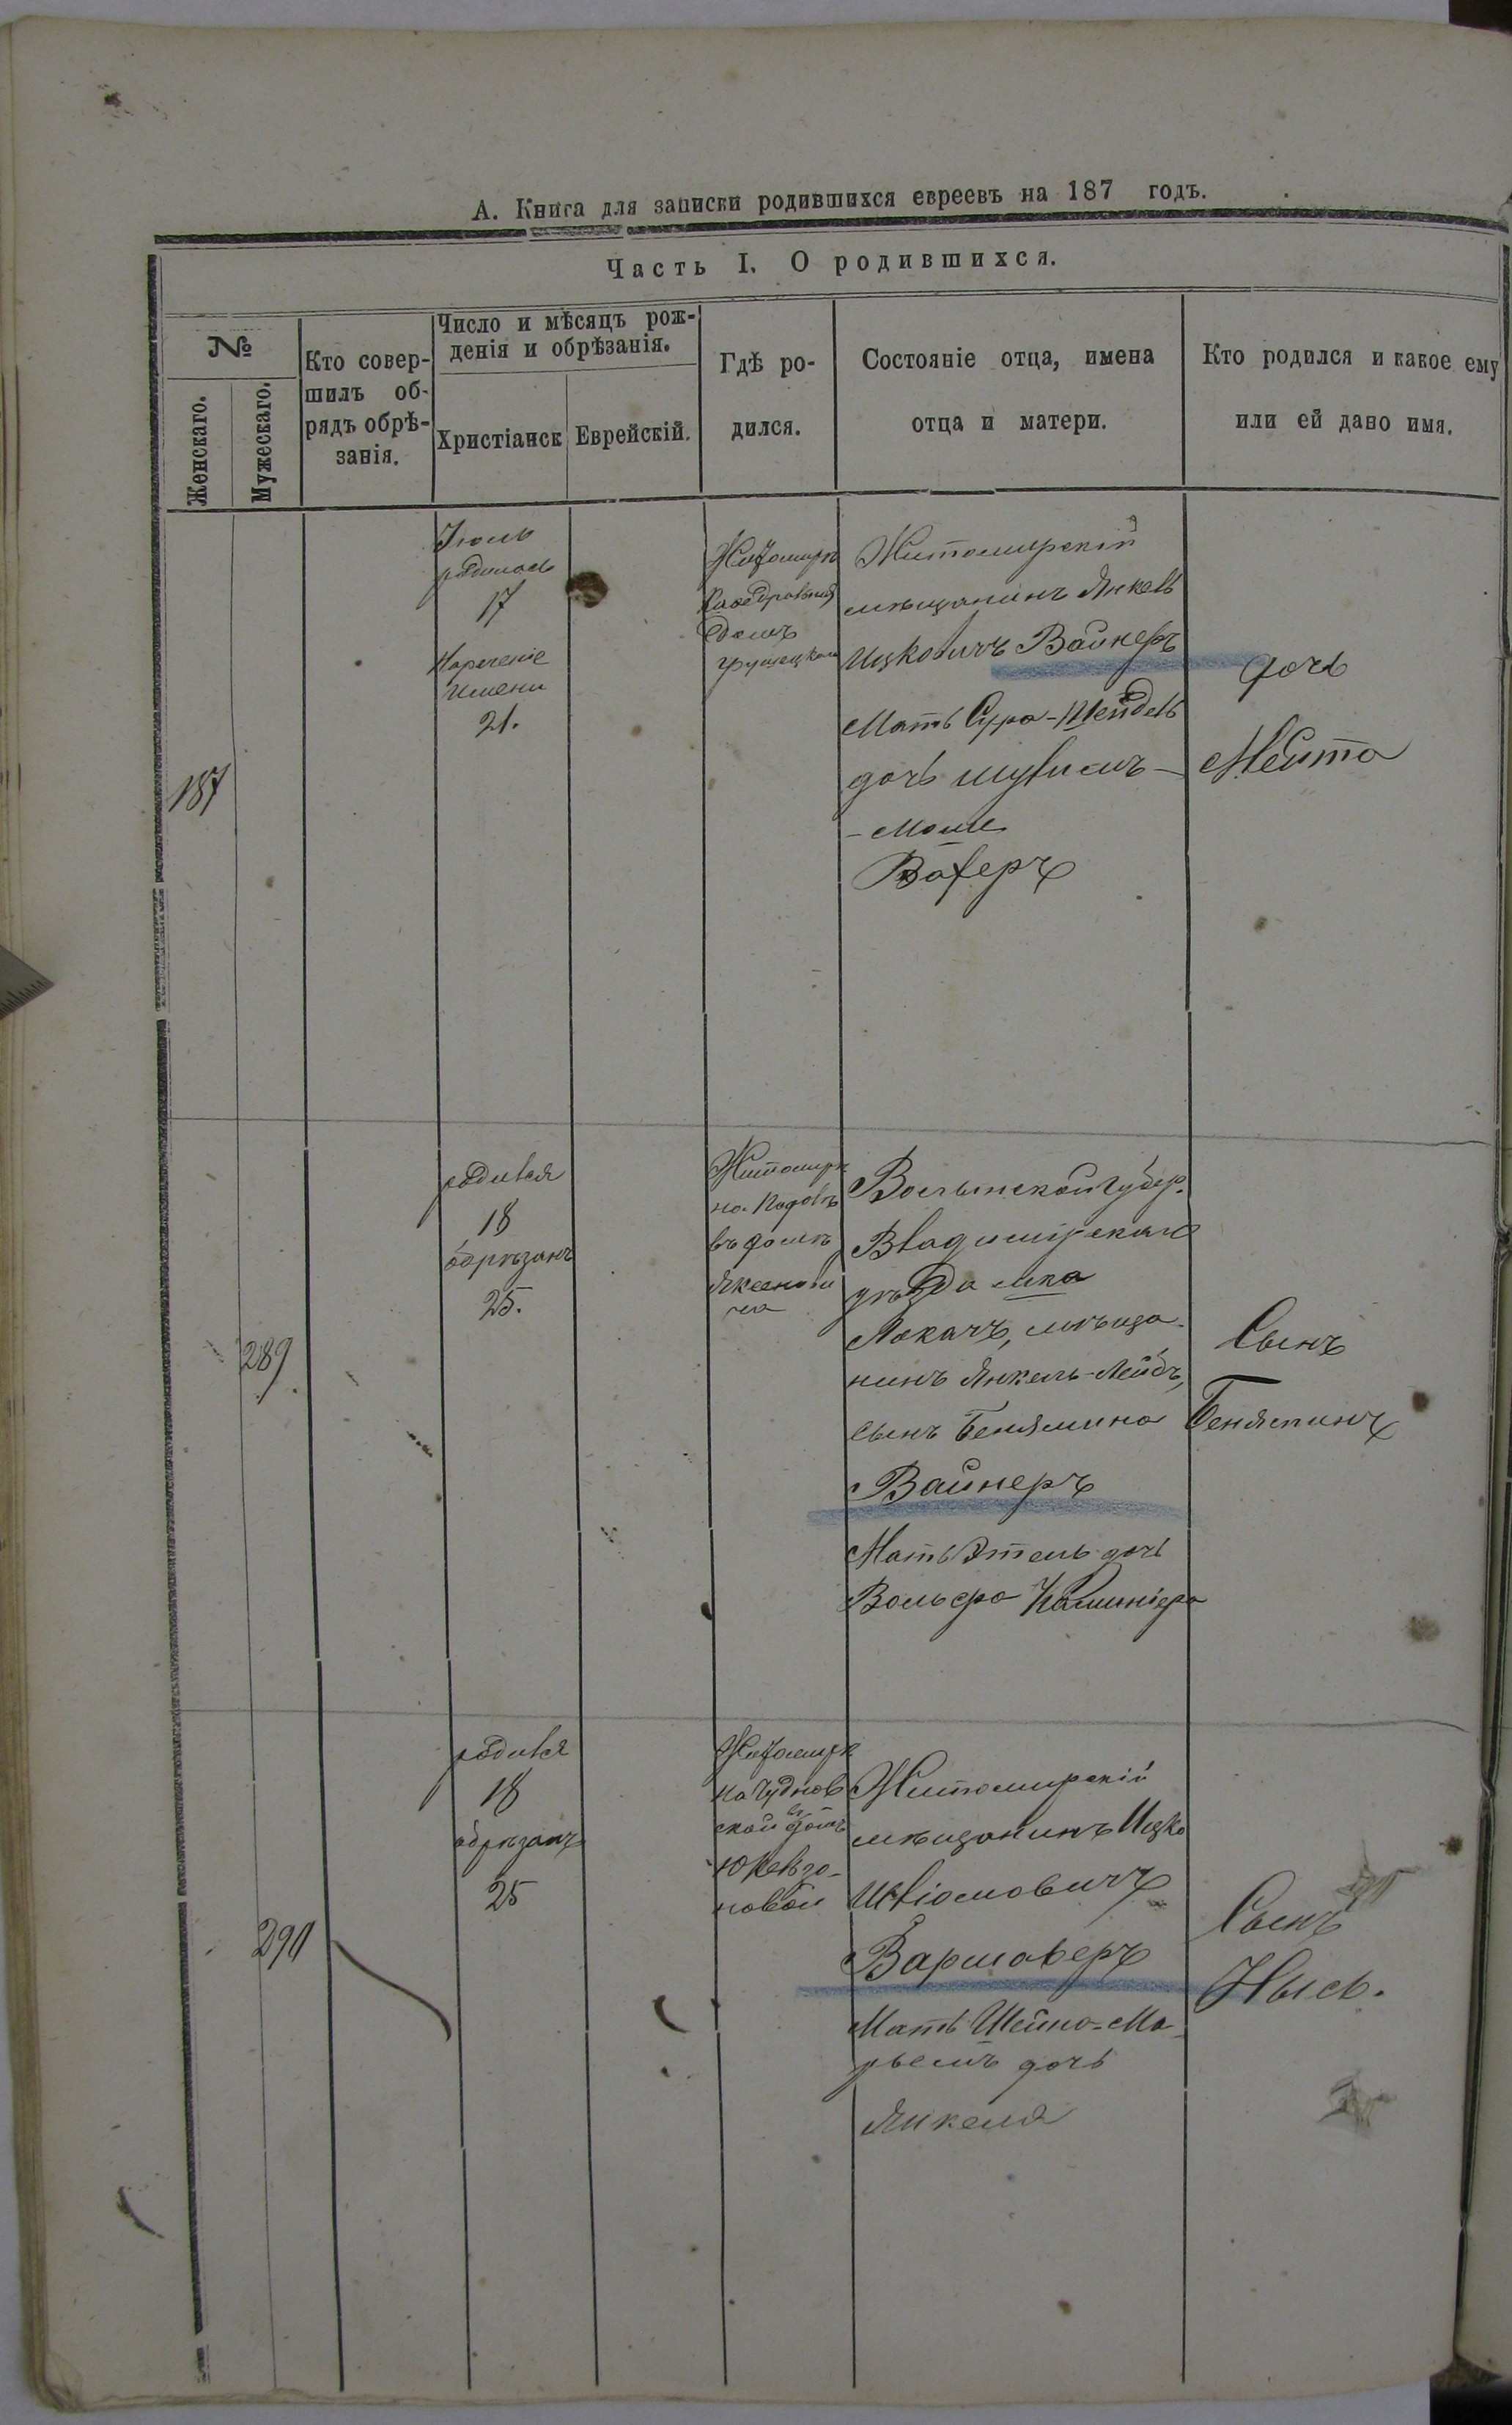 А. Книга для записки родившихся евреевъ на 187 годъ.
Часть I. О родившихся.
№
Женскаго.
Мужескаго.
Кто совер-
шилъ об-
рядъ обрѣ-
занія.
Число и мѣсяцъ рож-
денія и обрѣзанія.
Христіанск
Еврейскій.
Гдѣ ро-
дился.
Состояніе отца, имена
отца и матери.
Кто родился и какое ему
или ей дано имя.
187
Іюль
родилась
17
Нареченіе
имени
21.
Житомирѣ
домъ
Житомирскій
мѣщанинъ Янкель
Ицковичъ Вайнеръ
Мать Сура-Шейдель
дочь
-Моше
дочь
Мейта
289
родился
18
обрѣзанъ
25.
Житомирѣ
на
въ домѣ
Волынской губер.
Владимірскаго
уѣзда мка
Локачъ, мѣща-
нинъ Янкель-Лейбъ,
сынъ Бенямина
Вайнеръ
Мать Этель дочь
Вольфа
Сынъ
Беняминъ
290
родился
18
обрѣзанъ
25
Житомирѣ
на Чуднов
ской въ домѣ
Юкельзо-
новой
Житомирскій
мѣщанинъ Ицко
Шліомовичъ
Варшаверъ
Мать Шейна-Ма-
рьемъ дочь
Янкеля
Сынъ
Нысь.